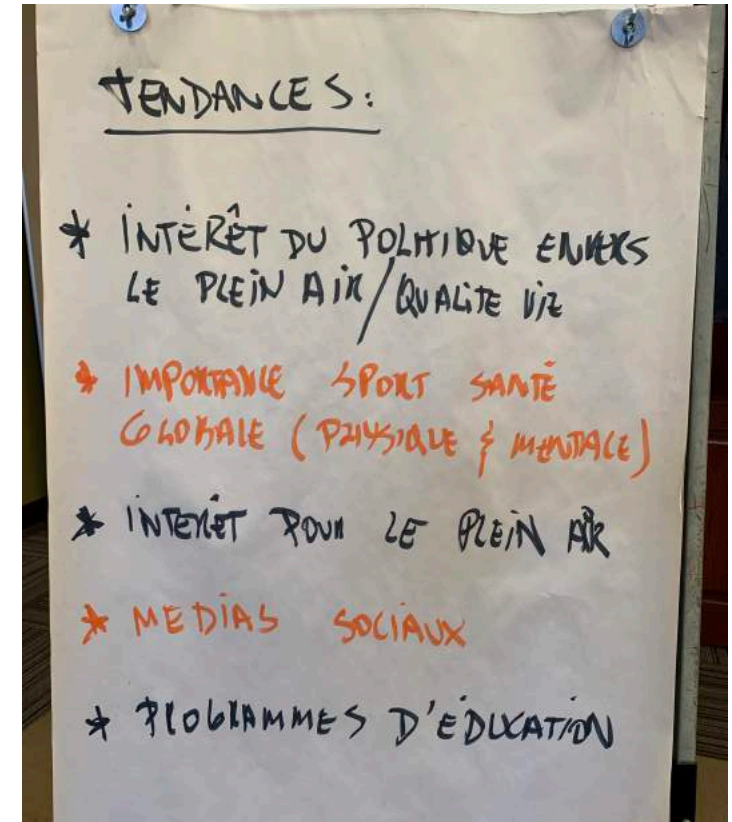 TENDANCES:
* INTÉRÊT DU POLITIQUE ENVERS
LE PLEIN AIR/QUALITE VIE
* IMPORTANCE SPORT SANTÉ
GLOBALE (PHYSIQUE & MENTALE)
* INTERÊT POUR LE PLEIN AIR
* MEDIAS SOCIAUX
* PROGRAMMES D'ÉDUCATION